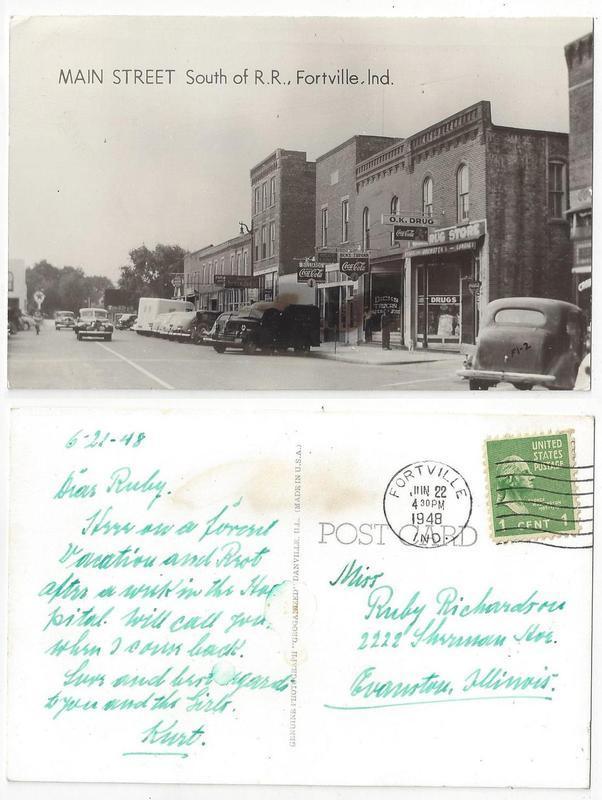 MAIN STREET South of R.R., Fortville, Ind.
O.K. DRUG
Coca-Cola
DRUG STORE
Coca-Cola
Coca-Cola
DRUGS
DICKS
TAVERN
F1-2
6-21-48
Dear Ruby.
Here on a forced
Vacation and Rest
after a week in the Hos
pital. Will call you
when I come back.
Love and best regards
to you and the Girls.
Kurt.
GENUINE PHOTOGRAPH "GROGANIZED" DANVILLE, ILL. (MADE IN U.S.A.)
POST CARD
FORTVILLE
JUN 22
4 30 PM
1948
IND.
UNITED
STATES
POSTAGE
1 CENT 1
Miss
Ruby Richardson
2222 Sherman Ave.
Evanston, Illinois.